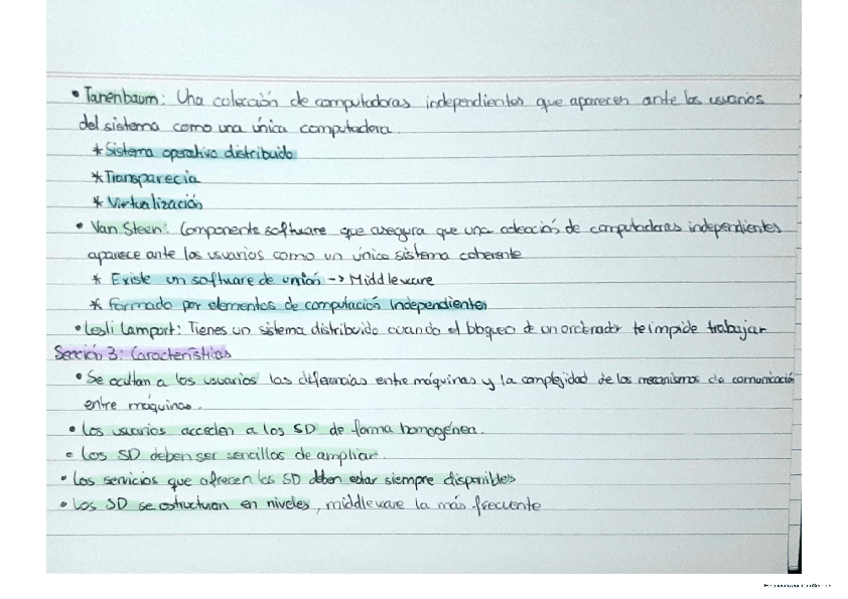 • Tanenbaum: Una colección de computadoras independientes que aparecen ante los usuarios
del sistema como una única computadora.
* Sistema operativo distribuido
* Transparecia
* Virtualización
• Van Steen: Componente software que asegura que una colección de computadoras independientes
aparece ante los usuarios como un único sistema coherente
* Existe un software de unión -> Middleware
* Formado por elementos de computación Independientes
• Lesli Lamport: Tienes un sistema distribuido cuando el bloqueo de un ordenador te impide trabajar
Sección 3: Características
• Se ocultan a los usuarios las diferencias entre máquinas y la complejidad de los mecanismos de comunicación
entre máquinas.
• Los usuarios acceden a los SD de forma homogénea.
• Los SD deben ser sencillos de ampliar.
• Los servicios que ofrecen los SD deben estar siempre disponibles
• Los SD se estructuran en niveles, middleware la más frecuente